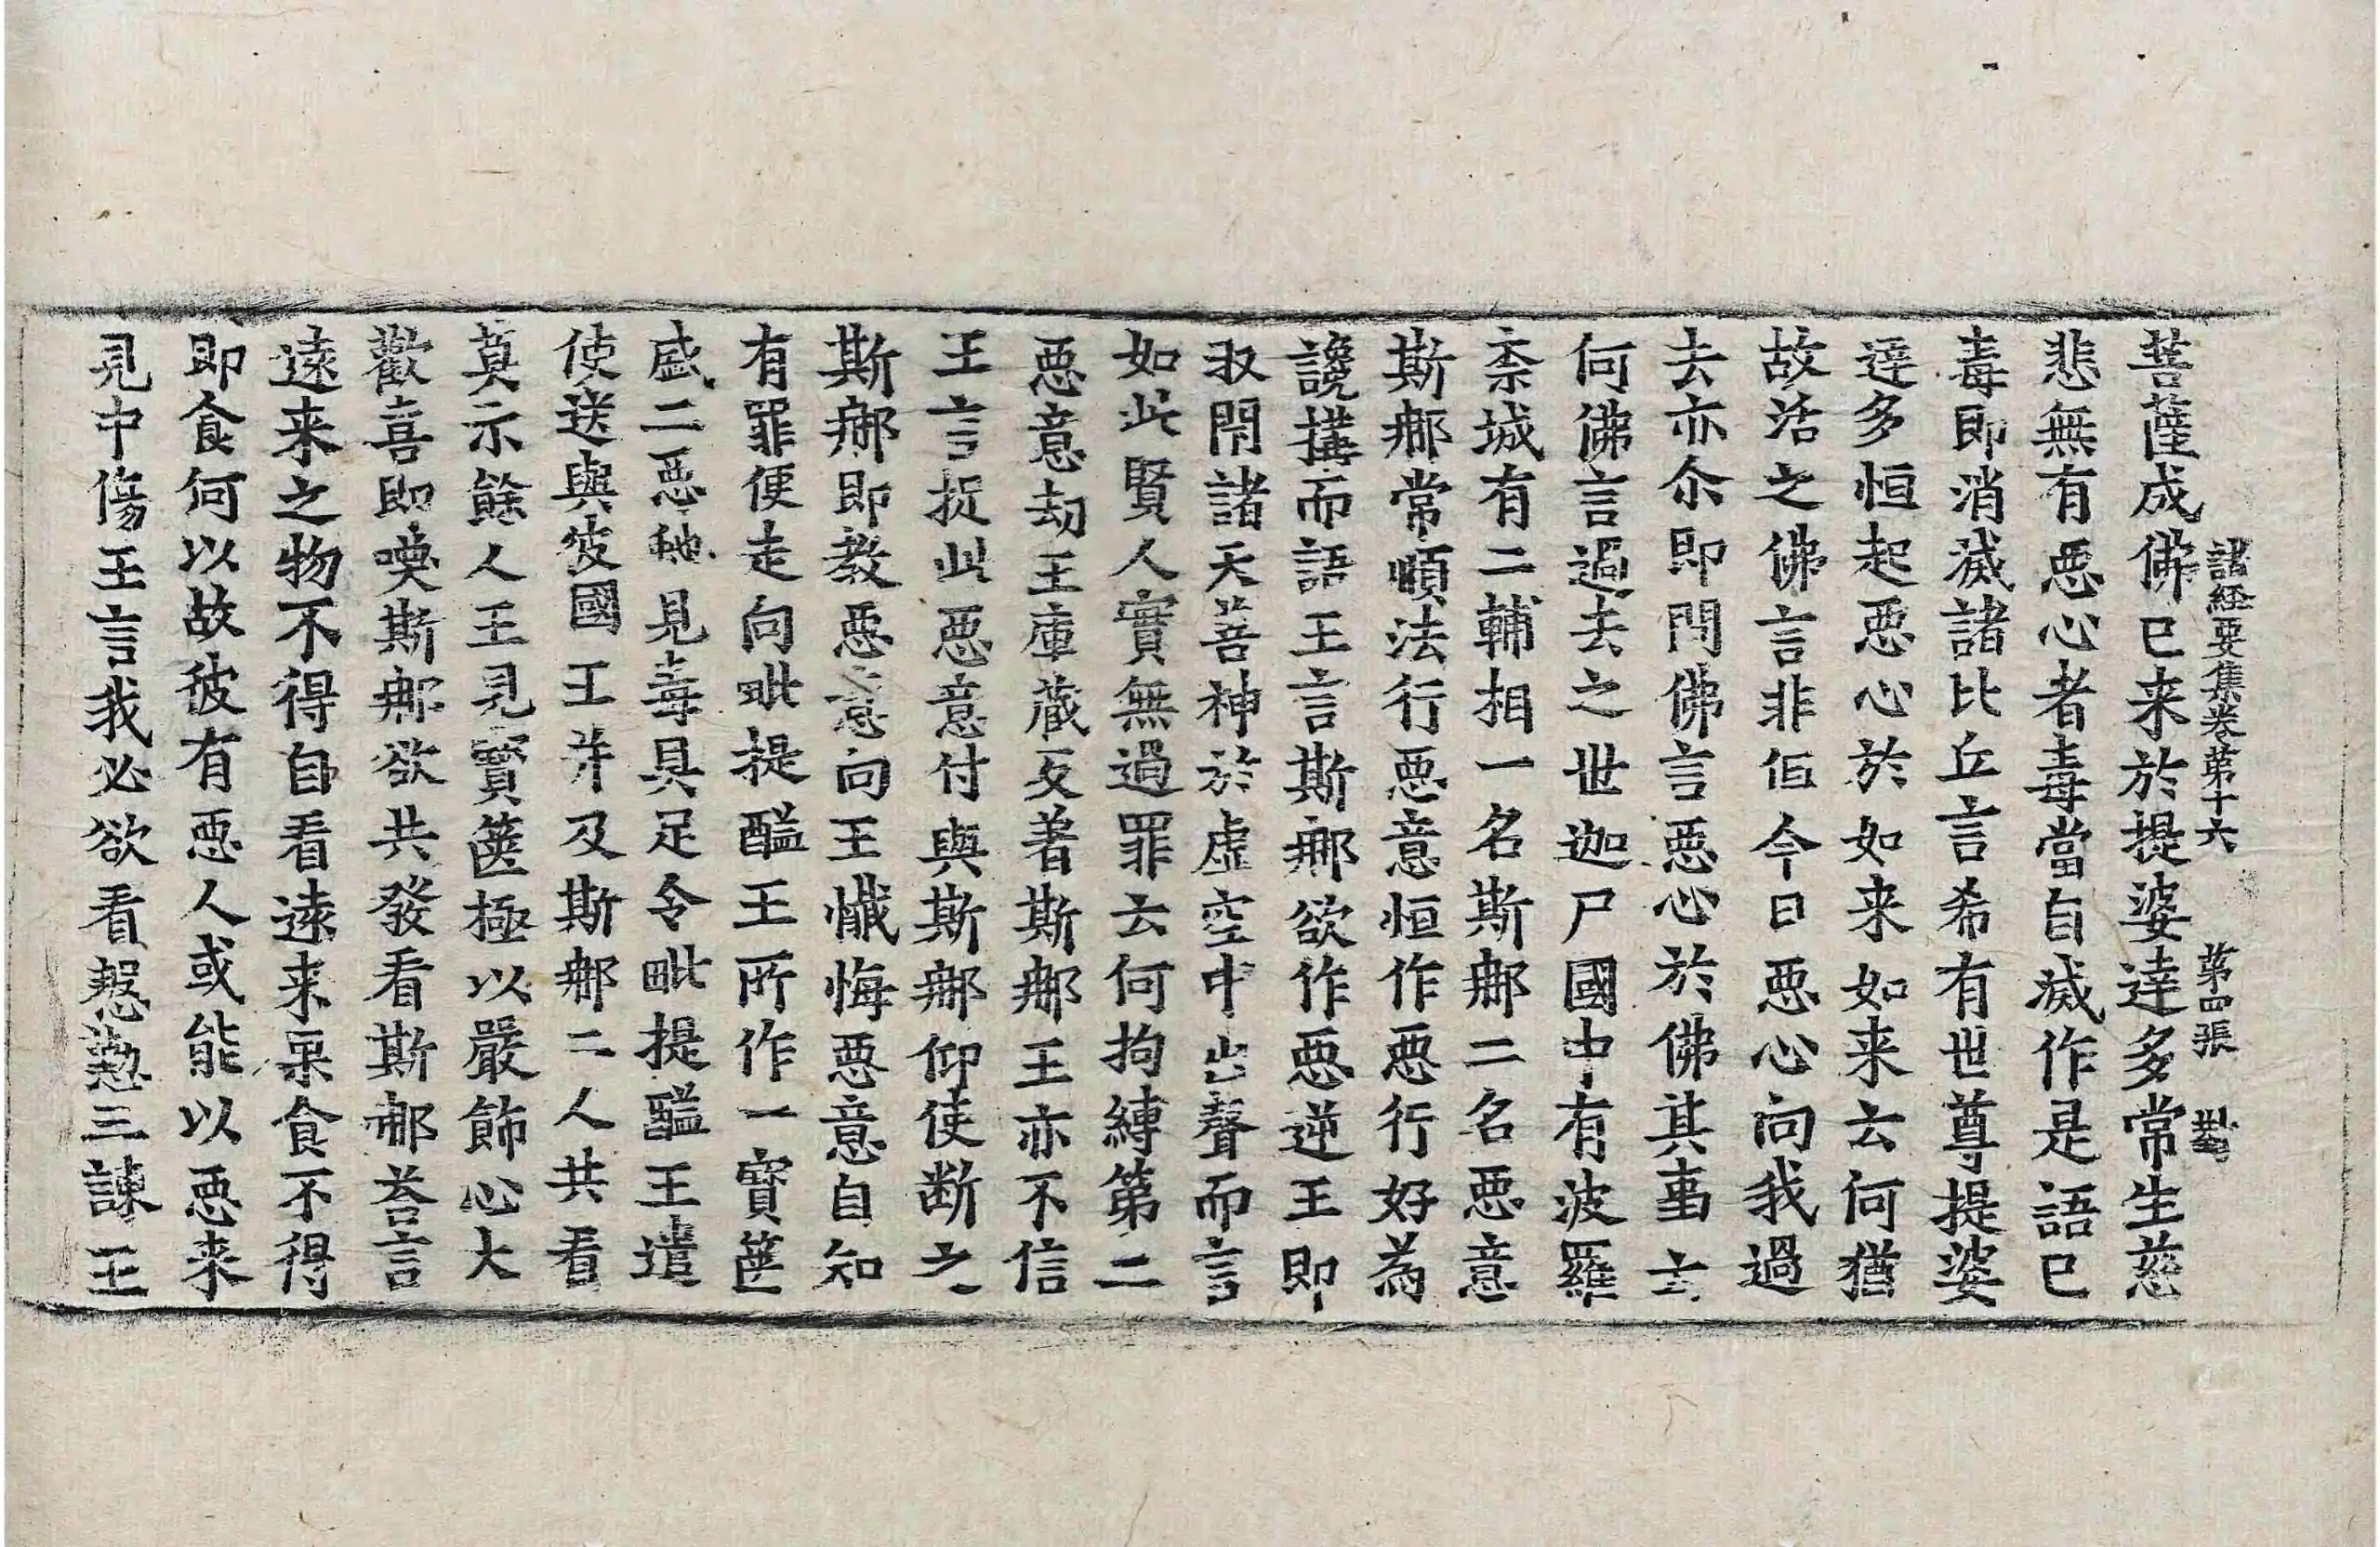 諸經要集卷第十六　第四張　對
菩薩成佛已来於提婆達多常生慈
悲無有惡心者毒當自滅作是語已
毒即消滅諸比丘言希有世尊提婆
達多恒起惡心於如来如来云何猶
故活之佛言非但今日惡心向我過
去亦尒即問佛言惡心於佛其事云
何佛言過去之世迦尸國中有波羅
柰城有二輔相一名斯那二名惡意
斯那常順法行惡意恒作惡行好為
讒搆而語王言斯那欲作惡逆王即
収閇諸天善神於虛空中出聲而言
如此賢人實無過罪云何拘縛第二
惡意劫王庫藏反著斯那王亦不信
王言捉此惡意付與斯那仰使断之
斯那即教惡意向王懺悔惡意自知
有罪便走向毗提醯王所作一寶篋
盛二惡虵見毒具足令毗提醯王遣
使送與彼國王并及斯那二人共看
莫示餘人王見寶篋極以嚴飾心大
歡喜即喚斯那欲共發看斯那荅言
遠来之物不得自看遠来菓食不得
即食何以故彼有惡人或能以惡来
見中傷王言我必欲看慇懃三諫王